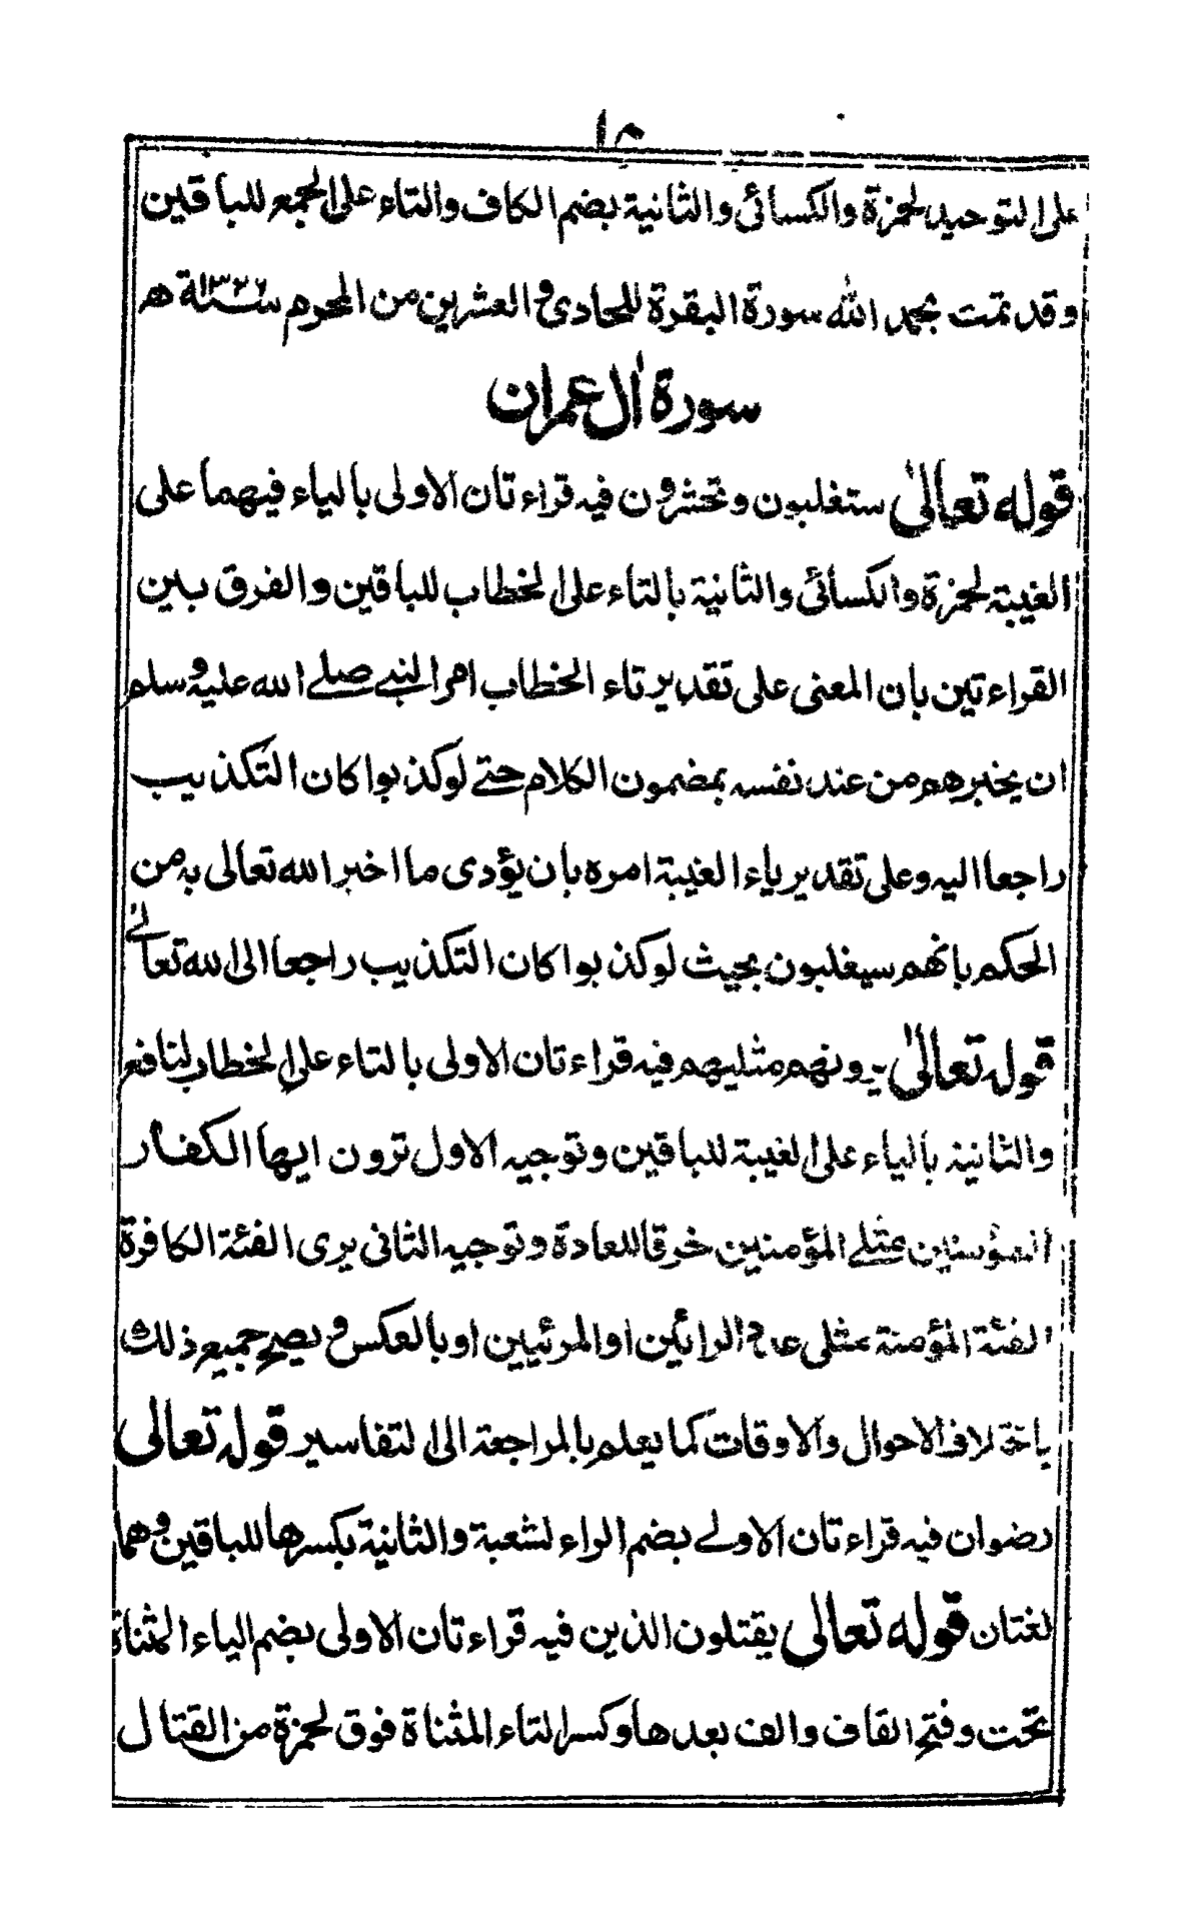 على التوحيد لحمزة والكسائى والثانية بضم الكاف والتاء على الجمع للباقين
وقد تمت بحمد الله سورة البقرة للحادى و العشرين من المحرم سنة ١٣٢٦ ه
سورة اٰل عمران
قوله تعالىٰ ستغلبون وتحشرون فيه قراءتان الاولى بالياء فيهما على
الغيبة لحمزة والكسائى والثانية بالتاء على الخطاب للباقين والفرق بين
القراءتين بان المعنى على تقدير تاء الخطاب امر النبے صلے الله عليه وسلم
ان يخبرهم من عند نفسه بمضمون الكلام حتے لو كذبوا كان التكذيب
راجعا اليه وعلى تقدير ياء الغيبة امره بان يؤدى ما اخبر الله تعالى به من
الحكم بانهم سيغلبون بحيث لو كذبوا كان التكذيب راجعا الى الله تعالےٰ
قوله تعالىٰ يرونهم مثليهم فيه قراءتان الاولى بالتاء على الخطاب لنافع
والثانية بالياء على الغيبة للباقين وتوجيه الاول ترون ايها الكفار
المؤمنين مثلے المؤمنين خرقا للعادة وتوجيه الثانى يرى الفئة الكافرة
الفئة المؤمنة مثلى عدد الرائين او المرئيين او بالعكس و يصح جميع ذلك
باختلاف الاحوال والاوقات كما يعلم بالمراجعة الى التفاسير قوله تعالى
رضوان فيه قراءتان الاولے بضم الراء لشعبة والثانية بكسرها للباقين وهما
لغتان قوله تعالى يقتلون الذين فيه قراءتان الاولى بضم الياء المثناة
تحت وفتح القاف والف بعدها وكسر التاء المثناة فوق لحمزة من القتال